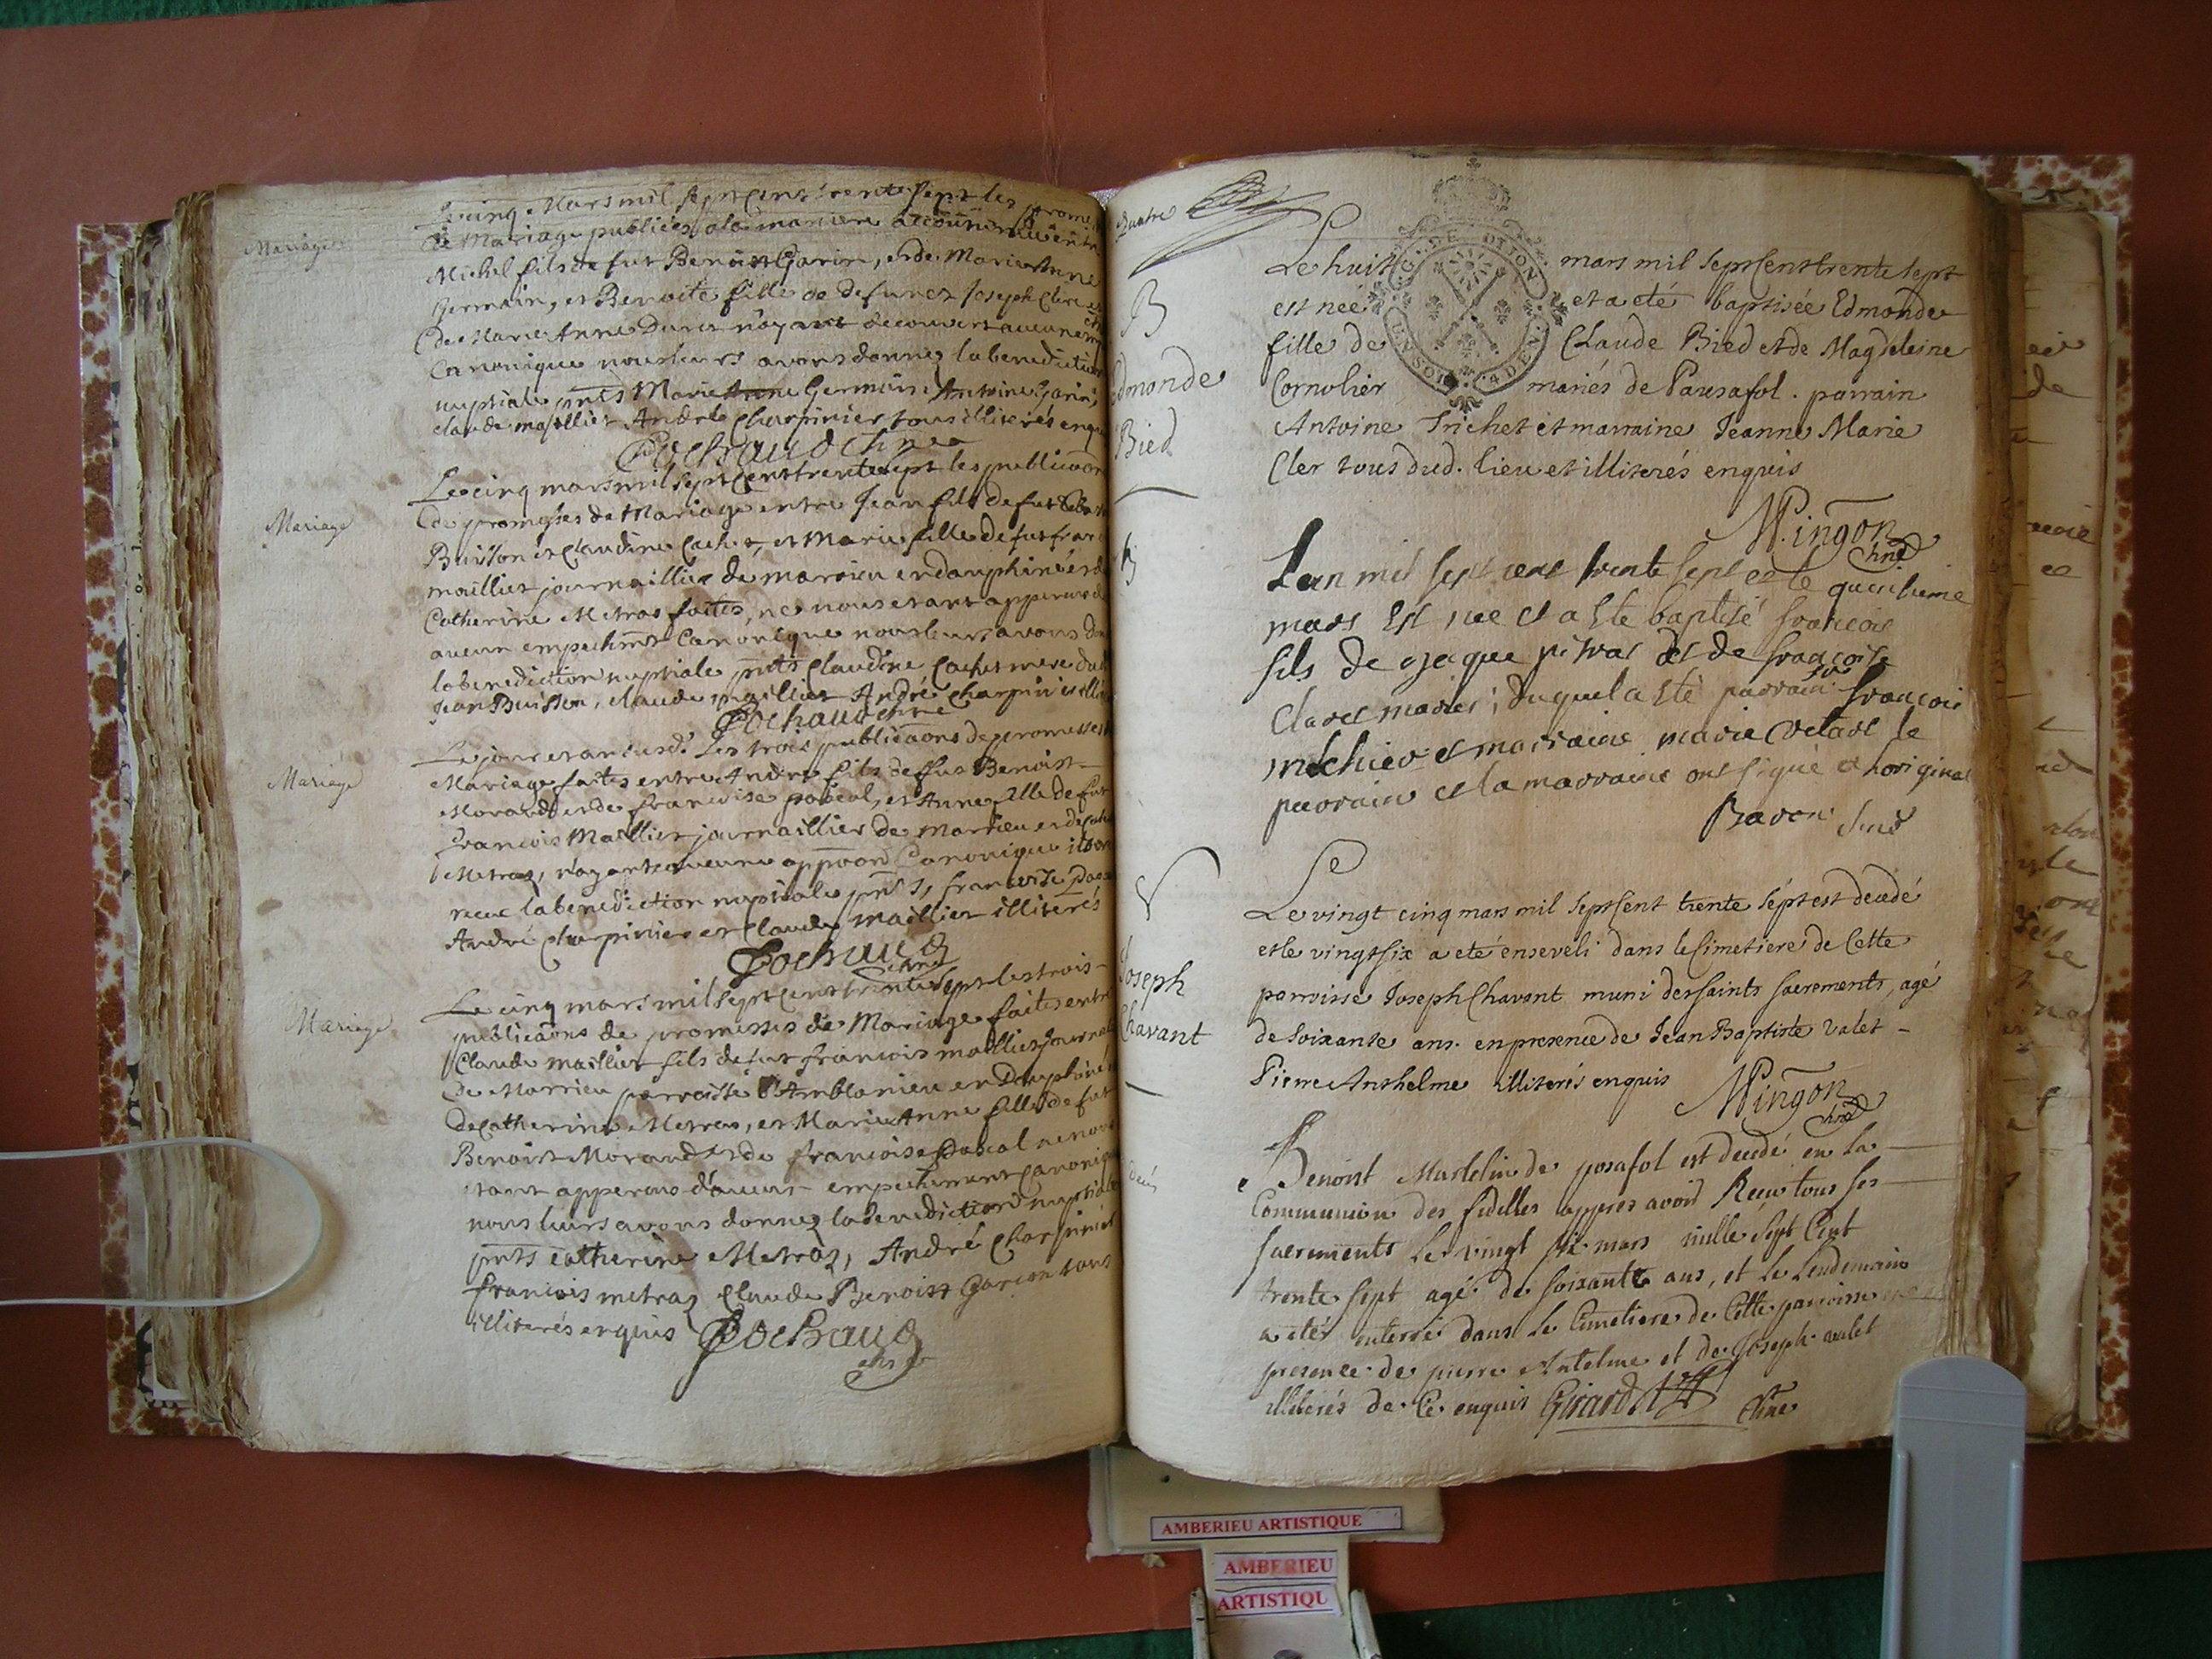 Mariage
Le cinq Mars mil sept cent trente sept les prome
de Mariage publiées a la maniere accoutumée entre
Michel fils de fut Benoist Garin, et de Marie Anne
Germain, et Benoite fille de defunct Joseph Clerc et
de Marie Anne Duret n'ayant decouvert aucun em
Canonique nous leurs avons donnez la benediction
nuptiale pnts Marie Anne Germain Antoine Garin,
claude maillier André Charpinier tous illiterés enquis
Pochaud chne
Mariage
Le cinq mars mil sept cent trente sept les publicaôn
de promesses de Mariage entre Jean fils de fut
Buisson et Claudine Cachet, et Marie fille de fut fran
maillier journaillier de marieu en dauphiné et de
Catherine Metras faites, ne nous etant apperçus d
aucun empechmt Canonique nous leurs avons don
la benediction nuptiale pnts Claudine Cachet mere dud
Jean Buisson, claude maillier André Charpinier illi
Pochaud chne
Mariage
Le jour et an susd. Les trois publicaôns de promesses de
Mariage faites entre André fils de fut Benoist
Morand et de francoise pascal, et Anne fille de fut
francois Maillier journaillier de Marieu et de Cath
Metras, n'ayant aucune oppôon Canonique ils on
receu la benediction nuptiale pnts, francoise pasc
André charpinier et claude maillier illiterés
Pochaud chne
Mariage
Le cinq mars mil sept cent trente sept les trois
publicaôns de promesses de Mariage faites entre
Claude maillier fils de fut francois maillier journal
de Marrieu parroisse d'Amblanieu en Dauphiné
de Catherine Metras, et Marie Anne fille de fut
Benoist Morand et de francoise Pascal ne nous
etant apperçus d'aucun empechement Canonique
nous leurs avons donnez la benediction nuptiale
pnts Catherine Metraz, André Charpinier
francois metraz Claude Benoist Garcon tous
illiterés enquis Pochaud
chne
Quatre
B
Edmonde
Bied
Le huit mars mil sept cent trente sept
est née et a eté baptisée Edmonde
fille de Claude Bied et de Magdeleine
Cornolier mariés de Pausafol. parrain
Antoine Trichet et marraine Jeanne Marie
Cler tous dud. lieu et illiterés enquis
Mingon
chne
G. DE DIJON
UN SOL 4 DEN.
B
Lan mil sept cent trente sept et le quinsieme
mars Est nee et a Este baptisé francois
fils de Jaque pitrat et de francoise
Claret mariés; duquel a Esté parrain Sr francois
melchior et marraine marie vetard le
parrain et la marraine ont signé a l'original
Baron chne
Joseph
Chavant
Le vingt cinq mars mil sept cent trente sept est decedé
et le vingt six a eté enseveli dans le Cimetiere de Cette
parroisse Joseph Chavant muni des saints sacrements, agé
de soixante ans. en presence de Jean Baptiste Valet
Pierre Anthelme illiterés enquis
Mingon
chne
Benoist Martelin de posafol est decedé en la
Communion des fidelles appres avoir Receu tous ses
sacrements le vingt six mars mille Sept Cent
trente sept agé de soixante ans, et le lendemain
a eté enterré dans le Cimetiere de Cette parroisse en
presence de pierre Antelme et de Joseph valet
illiterés de Ce enquis Girard
chne
AMBERIEU ARTISTIQUE
AMBERIEU
ARTISTIQU